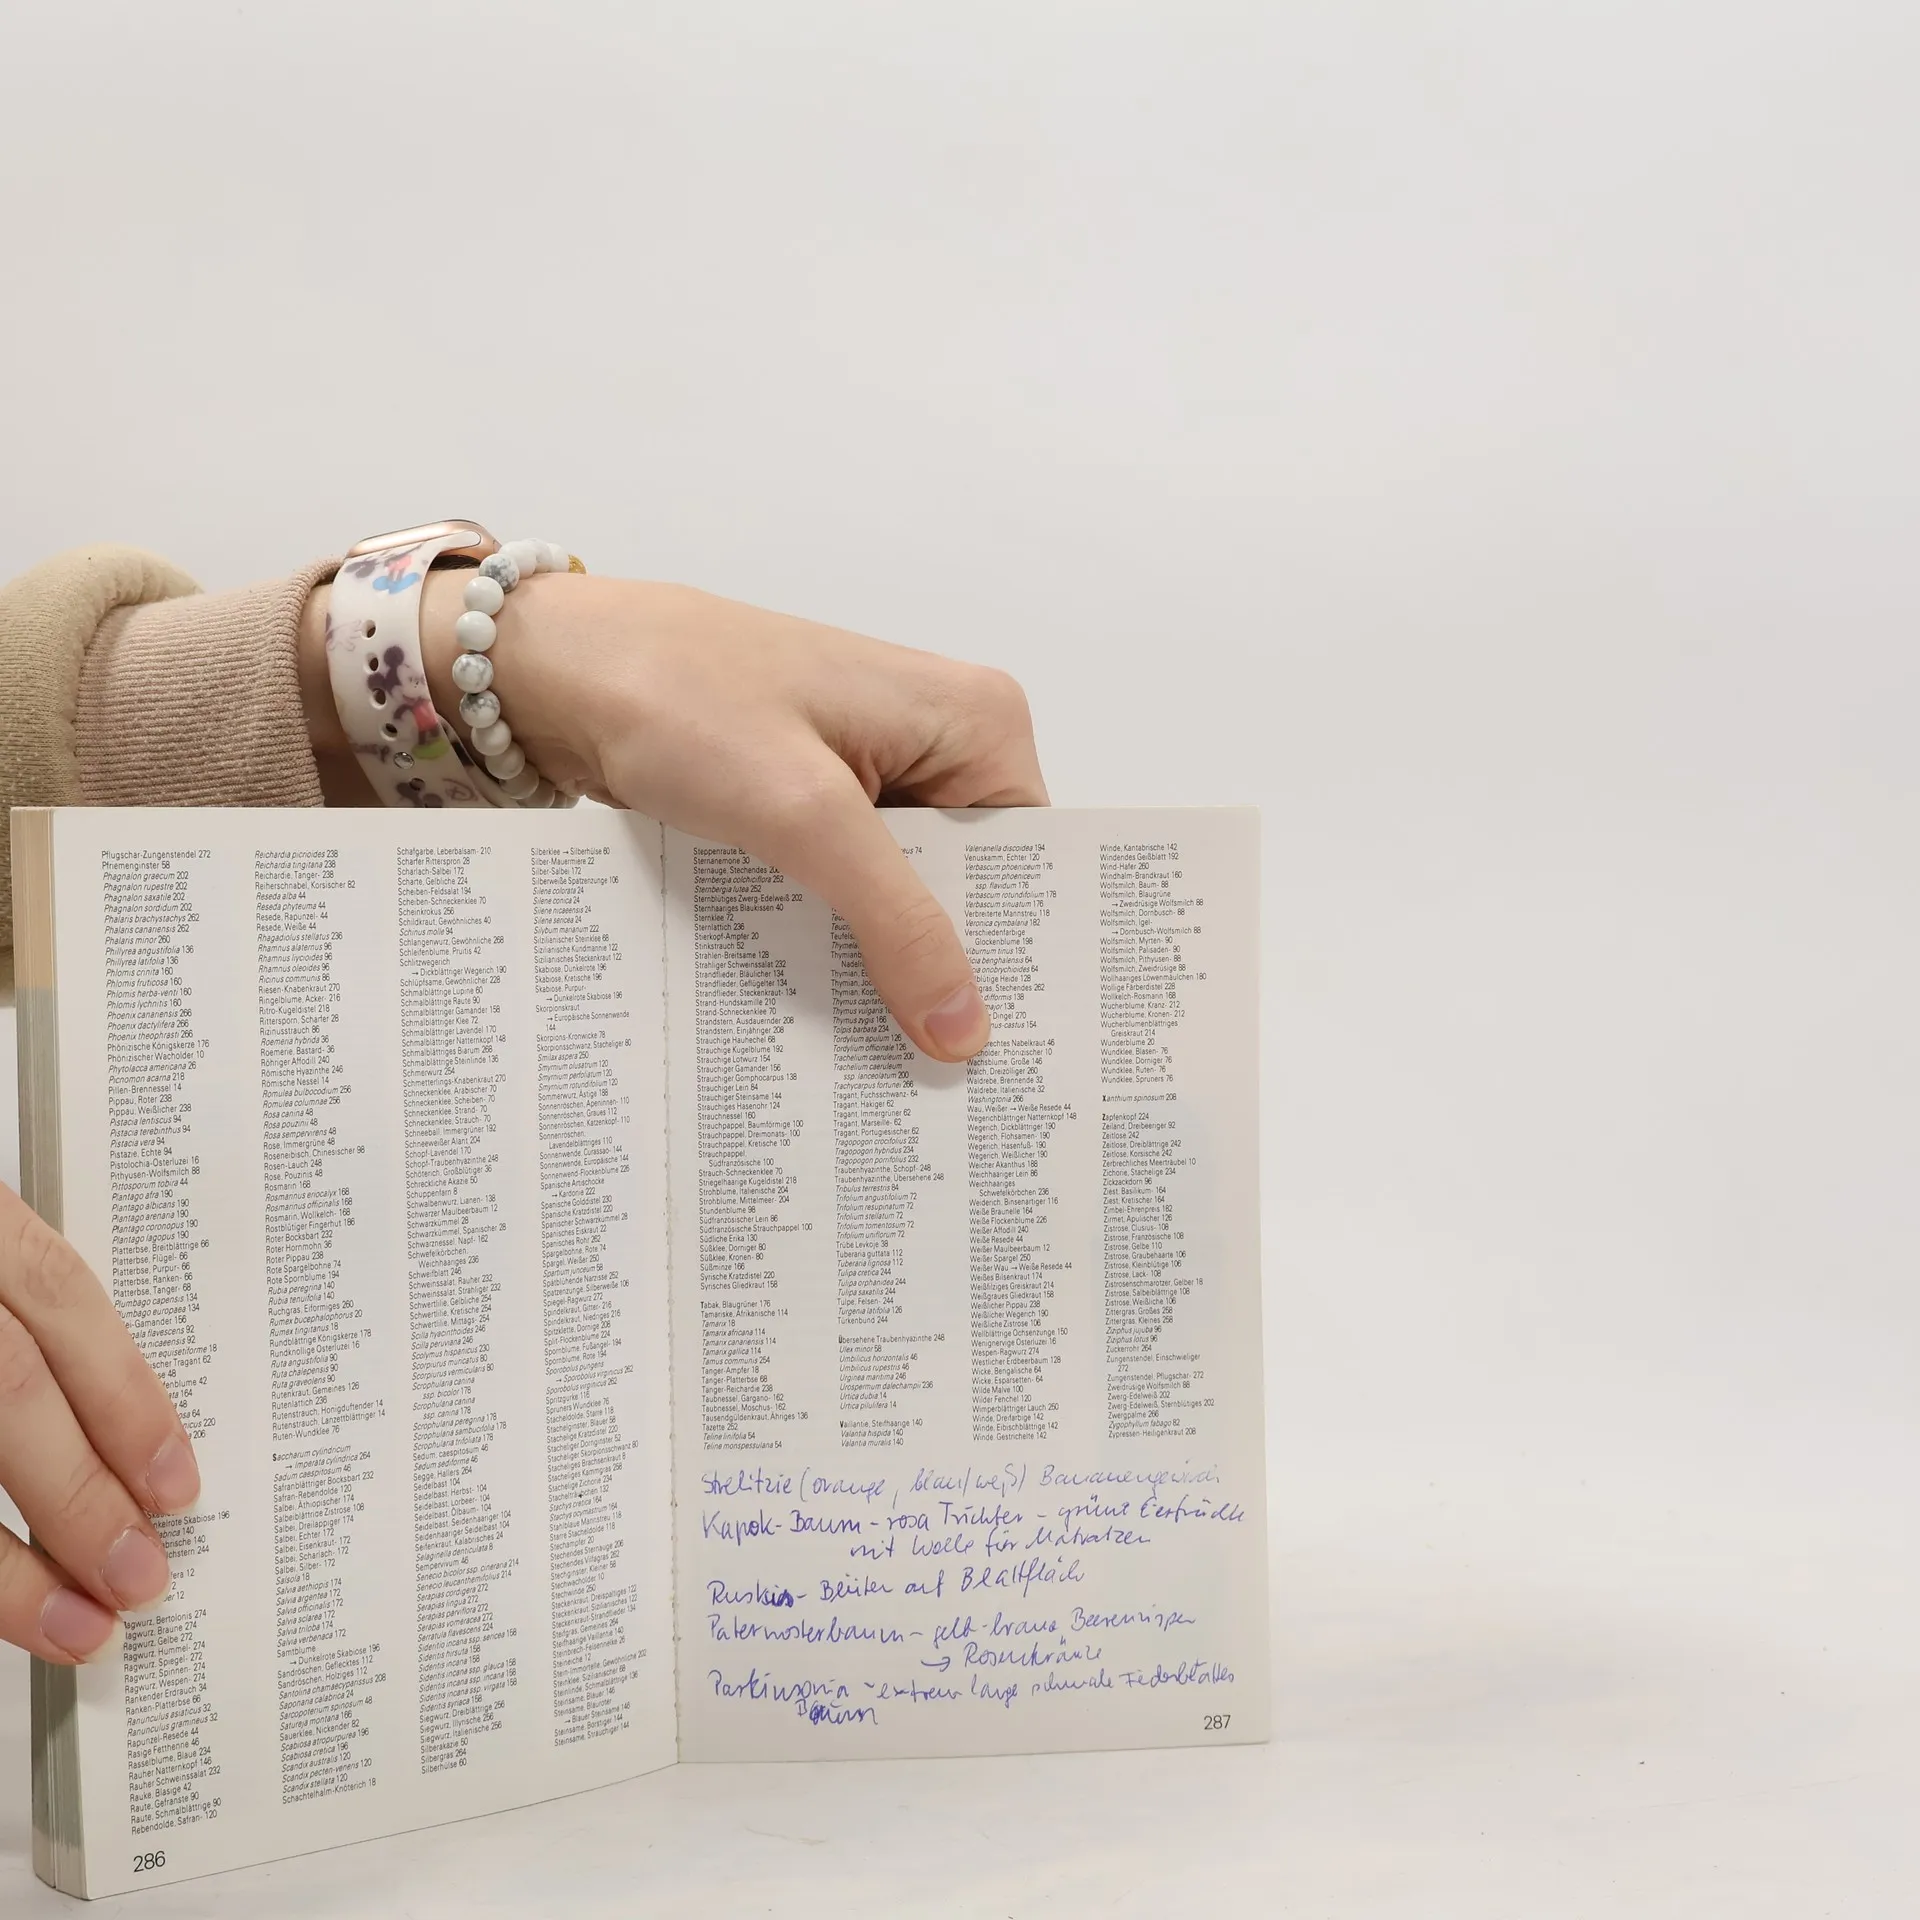 Pflugschar-Zungenstendel 272
Pfriemenginster 58
Phagnalon graecum 202
Phagnalon rupestre 202
Phagnalon saxatile 202
Phagnalon sordidum 202
Phalaris brachystachys 262
Phalaris canariensis 262
Phalaris minor 260
Phillyrea angustifolia 136
Phillyrea latifolia 136
Phlomis crinita 160
Phlomis fruticosa 160
Phlomis herba-venti 160
Phlomis lychnitis 160
Phoenix canariensis 266
Phoenix dactylifera 266
Phoenix theophrasti 266
Phönizische Königskerze 176
Phönizischer Wacholder 10
Phytolacca americana 26
Picnomon acarna 218
Pillen-Brennessel 14
Pippau, Roter 238
Pippau, Weißlicher 238
Pistacia lentiscus 94
Pistacia terebinthus 94
Pistacia vera 94
Pistazie, Echte 94
Pistolochia-Osterluzei 16
Pithyusen-Wolfsmilch 88
Pittosporum tobira 44
Plantago afra 190
Plantago albicans 190
Plantago arenaria 190
Plantago coronopus 190
Plantago lagopus 190
Platterbse, Breitblättrige 66
Platterbse, Flügel- 66
Platterbse, Purpur- 66
Platterbse, Ranken- 66
Platterbse, Tanger- 68
Plumbago capensis 134
Plumbago europaea 134
Ragwurz, Bertolonis 274
Ragwurz, Braune 274
Ragwurz, Gelbe 272
Ragwurz, Hummel- 274
Ragwurz, Spiegel- 272
Ragwurz, Spinnen- 274
Ragwurz, Wespen- 274
Rankender Erdrauch 34
Ranken-Platterbse 66
Ranunculus asiaticus 32
Ranunculus gramineus 32
Rapunzel-Resede 44
Rasige Fetthenne 46
Rasselblume, Blaue 234
Rauher Natternkopf 146
Rauher Schweinssalat 232
Rauke, Blasige 42
Raute, Gefranste 90
Raute, Schmalblättrige 90
Rebendolde, Safran- 120
286
Reichardia picroides 238
Reichardia tingitana 238
Reichardie, Tanger- 238
Reiherschnabel, Korsischer 82
Reseda alba 44
Reseda phyteuma 44
Resede, Rapunzel- 44
Resede, Weiße 44
Rhagadiolus stellatus 236
Rhamnus alaternus 96
Rhamnus lycioides 96
Rhamnus oleoides 96
Ricinus communis 86
Riesen-Knabenkraut 270
Ringelblume, Acker- 216
Ritro-Kugeldistel 218
Rittersporn, Scharfer 28
Rizinusstrauch 86
Roemeria hybrida 36
Roemerie, Bastard- 36
Röhriger Affodill 240
Römische Hyazinthe 246
Römische Nessel 14
Romulea bulbocodium 256
Romulea columnae 256
Rosa canina 48
Rosa pouzinii 48
Rosa sempervirens 48
Rose, Immergrüne 48
Roseneibisch, Chinesischer 98
Rosen-Lauch 248
Rose, Pouzinis 48
Rosmarin 168
Rosmarinus eriocalyx 168
Rosmarinus officinalis 168
Rosmarin, Wollkelch- 168
Rostblütiger Fingerhut 186
Roter Bocksbart 232
Roter Hornmohn 36
Roter Pippau 238
Rote Spargelbohne 74
Rote Spornblume 194
Rubia peregrina 140
Rubia tenuifolia 140
Ruchgras, Eiförmiges 260
Rumex bucephalophorus 20
Rumex tingitanus 18
Rundblättrige Königskerze 178
Rundknollige Osterluzei 16
Ruta angustifolia 90
Ruta chalepensis 90
Ruta graveolens 90
Rutenkraut, Gemeines 126
Rutenlattich 236
Rutenstrauch, Honigduftender 14
Rutenstrauch, Lanzettblättriger 14
Ruten-Wundklee 76
Saccharum cylindricum
→ Imperata cylindrica 264
Sadum caespitosum 46
Safranblättriger Bocksbart 232
Safran-Rebendolde 120
Salbei, Äthiopischer 174
Salbeiblättrige Zistrose 108
Salbei, Dreilappiger 174
Salbei, Echter 172
Salbei, Eisenkraut- 172
Salbei, Scharlach- 172
Salbei, Silber- 172
Salsola 18
Salvia aethiopis 174
Salvia argentea 172
Salvia officinalis 172
Salvia sclarea 172
Salvia triloba 174
Salvia verbenaca 172
Samtblume
→ Dunkelrote Skabiose 196
Sandröschen, Geflecktes 112
Sandröschen, Holziges 112
Santolina chamaecyparissus 208
Saponaria calabrica 24
Sarcopoterium spinosum 48
Satureja montana 166
Sauerklee, Nickender 82
Scabiosa atropurpurea 196
Scabiosa cretica 196
Scandix australis 120
Scandix pecten-veneris 120
Scandix stellata 120
Schachtelhalm-Knöterich 18
Schafgarbe, Leberbalsam- 210
Scharfer Rittersporn 28
Scharlach-Salbei 172
Scharte, Gelbliche 224
Scheiben-Feldsalat 194
Scheiben-Schneckenklee 70
Scheinkrokus 256
Schildkraut, Gewöhnliches 40
Schinus molle 94
Schlangenwurz, Gewöhnliche 268
Schleifenblume, Pruitis 42
Schlitzwegerich
→ Dickblättriger Wegerich 190
Schlüpfsame, Gewöhnlicher 228
Schmalblättrige Lupine 60
Schmalblättrige Raute 90
Schmalblättriger Gamander 158
Schmalblättriger Klee 72
Schmalblättriger Lavendel 170
Schmalblättriger Natternkopf 148
Schmalblättriges Biarum 268
Schmalblättrige Steinlinde 136
Schmerwurz 254
Schmetterlings-Knabenkraut 270
Schneckenklee, Arabischer 70
Schneckenklee, Scheiben- 70
Schneckenklee, Strand- 70
Schneckenklee, Strauch- 70
Schneeball, Immergrüner 192
Schneeweißer Alant 204
Schopf-Lavendel 170
Schopf-Traubenhyazinthe 248
Schöterich, Großblütiger 36
Schreckliche Akazie 50
Schuppenfarn 8
Schwalbenwurz, Lianen- 138
Schwarzer Maulbeerbaum 12
Schwarzkümmel 28
Schwarzkümmel, Spanischer 28
Schwarznessel, Napf- 162
Schwefelkörbchen,
Weichhaariges 236
Schweifblatt 246
Schweinssalat, Rauher 232
Schweinssalat, Strahliger 232
Schwertlilie, Gelbliche 254
Schwertlilie, Kretische 254
Schwertlilie, Mittags- 254
Scilla hyacinthoides 246
Scilla peruviana 246
Scolymus hispanicus 230
Scorpiurus muricatus 80
Scorpiurus vermicularis 80
Scrophularia canina
ssp. bicolor 178
Scrophularia canina
ssp. canina 178
Scrophularia peregrina 178
Scrophularia sambucifolia 178
Scrophularia trifoliata 178
Sedum, caespitosum 46
Sedum sediforme 46
Segge, Hallers 264
Seidelbast 104
Seidelbast, Herbst- 104
Seidelbast, Lorbeer- 104
Seidelbast, Ölbaum- 104
Seidelbast, Seidenhaariger 104
Seidenhaariger Seidelbast 104
Seifenkraut, Kalabrisches 24
Selaginella denticulata 8
Sempervivum 46
Senecio bicolor ssp. cineraria 214
Senecio leucanthemifolius 214
Serapias cordigera 272
Serapias lingua 272
Serapias parviflora 272
Serapias vomeracea 272
Serratula flavescens 224
Sideritis incana ssp. sericea 158
Sideritis hirsuta 158
Sideritis incana 158
Sideritis incana ssp. glauca 158
Sideritis incana ssp. incana 158
Sideritis incana ssp. virgata 158
Sideritis syriaca 158
Siegwurz, Dreiblättrige 256
Siegwurz, Illyrische 256
Siegwurz, Italienische 256
Silberakazie 50
Silbergras 264
Silberhülse 60
Silberklee → Silberhülse 60
Silber-Mauermiere 22
Silber-Salbei 172
Silberweiße Spatzenzunge 106
Silene colorata 24
Silene conica 24
Silene nicaeensis 24
Silene sericea 24
Silybum marianum 222
Sizilianischer Steinklee 68
Sizilianische Kundmannie 122
Sizilianisches Steckenkraut 122
Skabiose, Dunkelrote 196
Skabiose, Kretische 196
Skabiose, Purpur-
→ Dunkelrote Skabiose 196
Skorpionskraut
→ Europäische Sonnenwende
144
Skorpions-Kronwicke 78
Skorpionsschwanz, Stacheliger 80
Smilax aspera 250
Smyrnium olusatrum 120
Smyrnium perfoliatum 120
Smyrnium rotundifolium 120
Sommerwurz, Ästige 188
Sonnenröschen, Apenninen- 110
Sonnenröschen, Graues 112
Sonnenröschen, Katzenkopf- 110
Sonnenröschen,
Lavendelblättriges 110
Sonnenwende, Curassao- 144
Sonnenwende, Europäische 144
Sonnenwend-Flockenblume 226
Spanische Artischocke
→ Kardone 222
Spanische Golddistel 230
Spanische Kratzdistel 220
Spanischer Schwarzkümmel 28
Spanisches Eiskraut 22
Spanisches Rohr 262
Spargelbohne, Rote 74
Spargel, Weißer 250
Spartium junceum 58
Spätblühende Narzisse 252
Spatzenzunge, Silberweiße 106
Spiegel-Ragwurz 272
Spindelkraut, Gitter- 216
Spindelkraut, Niedriges 216
Spitzklette, Dornige 208
Split-Flockenblume 224
Spornblume, Fußangel- 194
Spornblume, Rote 194
Sporobolus pungens
→ Sporobolus virginicus 262
Sporobolus virginicus 262
Spritzgurke 116
Spruners Wundklee 76
Stacheldolde, Starre 118
Stachelginster, Blauer 58
Stachelige Kratzdistel 220
Stacheliger Dornginster 52
Stacheliger Skorpionsschwanz 80
Stacheliges Brachsenkraut 8
Stacheliges Kammgras 258
Stachelige Zichorie 234
Stachelträubchen 132
Stachys cretica 164
Stachys ocymastrum 164
Stahlblaue Mannstreu 118
Starre Stacheldolde 118
Stechampfer 20
Stechendes Sternauge 206
Stechendes Vilfagras 262
Stechginster, Kleiner 58
Stechwacholder 10
Stechwinde 250
Steckenkraut, Dreispaltiges 122
Steckenkraut, Sizilianisches 122
Steckenkraut-Strandflieder 134
Steifgras, Gemeines 264
Steifhaarige Vaillantie 140
Steinbrech-Felsennelke 26
Steineiche 12
Stein-Immortelle, Gewöhnliche 202
Steinklee, Sizilianischer 68
Steinlinde, Schmalblättrige 136
Steinsame, Blauer 146
Steinsame, Blauroter
→ Blauer Steinsame 146
Steinsame, Borstiger 144
Steinsame, Strauchiger 144
Steppenraute
Sternanemone 30
Sternauge, Stechendes
Sternbergia colchiciflora 252
Sternbergia lutea 252
Sternblütiges Zwerg-Edelweiß 202
Sternhaariges Blaukissen 40
Sternklee 72
Sternlattich 236
Stierkopf-Ampfer 20
Stinkstrauch 52
Strahlen-Breitsame 128
Strahliger Schweinssalat 232
Strandflieder, Bläulicher 134
Strandflieder, Geflügelter 134
Strandflieder, Steckenkraut- 134
Strand-Hundskamille 210
Strand-Schneckenklee 70
Strandstern, Ausdauernder 208
Strandstern, Einjähriger 208
Strauchige Hauhechel 68
Strauchige Kugelblume 192
Strauchige Lotwurz 154
Strauchiger Gamander 156
Strauchiger Gomphocarpus 138
Strauchiger Lein 84
Strauchiger Steinsame 144
Strauchiges Hasenohr 124
Strauchnessel 160
Strauchpappel, Baumförmige 100
Strauchpappel, Dreimonats- 100
Strauchpappel, Kretische 100
Strauchpappel,
Südfranzösische 100
Strauch-Schneckenklee 70
Striegelhaarige Kugeldistel 218
Strohblume, Italienische 204
Strohblume, Mittelmeer- 204
Stundenblume 98
Südfranzösischer Lein 86
Südfranzösischer Strauchpappel 100
Südliche Erika 130
Süßklee, Dorniger 80
Süßklee, Kronen- 80
Süßminze 166
Syrische Kratzdistel 220
Syrisches Gliedkraut 158
Tabak, Blaugrüner 176
Tamariske, Afrikanische 114
Tamarix 18
Tamarix africana 114
Tamarix canariensis 114
Tamarix gallica 114
Tamus communis 254
Tanger-Ampfer 18
Tanger-Platterbse 68
Tanger-Reichardie 238
Taubnessel, Gargano- 162
Taubnessel, Moschus- 162
Tausendgüldenkraut, Ähriges 136
Tazette 252
Teline linifolia 54
Teline monspessulana 54
Thymus vulgaris
Thymus zygis 166
Tolpis barbata 234
Tordylium apulum 126
Tordylium officinale 126
Trachelium caeruleum 200
Trachelium caeruleum
ssp. lanceolatum 200
Trachycarpus fortunei 266
Tragant, Fuchsschwanz- 64
Tragant, Hakiger 62
Tragant, Immergrüner 62
Tragant, Marseille- 62
Tragant, Portugiesischer 62
Tragopogon crocifolius 232
Tragopogon hybridus 232
Tragopogon porrifolius 232
Traubenhyazinthe, Schopf- 248
Traubenhyazinthe, Übersehene 248
Tribulus terrestris 84
Trifolium angustifolium 72
Trifolium resupinatum 72
Trifolium stellatum 72
Trifolium tomentosum 72
Trifolium uniflorum 72
Trübe Levkoje 38
Tuberaria guttata 112
Tuberaria lignosa 112
Tulipa cretica 244
Tulipa orphanidea 244
Tulipa saxatilis 244
Tulpe, Felsen- 244
Turgenia latifolia 126
Türkenbund 244
Übersehene Traubenhyazinthe 248
Ulex minor 58
Umbilicus horizontalis 46
Umbilicus rupestris 46
Urginea maritima 246
Urospermum dalechampii 236
Urtica dubia 14
Urtica pilulifera 14
Vaillantie, Steifhaarige 140
Valantia hispida 140
Valantia muralis 140
Valerianella discoidea 194
Venuskamm, Echter 120
Verbascum phoeniceum 176
Verbascum phoeniceum
ssp. flavidum 176
Verbascum rotundifolium 178
Verbascum sinuatum 176
Verbreiterte Mannstreu 118
Veronica cymbalaria 182
Verschiedenfarbige
Glockenblume 198
Viburnum tinus 192
Vicia benghalensis 64
Vicia onobrychioides 64
Wacholder, Phönizischer 10
Wachsblume, Große 146
Walch, Dreizölliger 260
Waldrebe, Brennende 32
Waldrebe, Italienische 32
Washingtonia 266
Wau, Weißer → Weiße Resede 44
Wegerichblättriger Natternkopf 148
Wegerich, Dickblättriger 190
Wegerich, Flohsamen- 190
Wegerich, Hasenfuß- 190
Wegerich, Weißlicher 190
Weicher Akanthus 188
Weichhaariger Lein 86
Weichhaariges
Schwefelkörbchen 236
Weiderich, Binsenartiger 116
Weiße Braunelle 164
Weiße Flockenblume 226
Weißer Affodill 240
Weiße Resede 44
Weißer Maulbeerbaum 12
Weißer Spargel 250
Weißer Wau → Weiße Resede 44
Weißes Bilsenkraut 174
Weißfilziges Greiskraut 214
Weißgraues Gliedkraut 158
Weißlicher Pippau 238
Weißlicher Wegerich 190
Weißliche Zistrose 106
Wellblättrige Ochsenzunge 150
Wenignervige Osterluzei 16
Wespen-Ragwurz 274
Westlicher Erdbeerbaum 128
Wicke, Bengalische 64
Wicke, Esparsetten- 64
Wilde Malve 100
Wilder Fenchel 120
Wimperblättriger Lauch 250
Winde, Dreifarbige 142
Winde, Eibischblättrige 142
Winde, Gestrichelte 142
Winde, Kantabrische 142
Windendes Geißblatt 192
Wind-Hafer 260
Windhalm-Brandkraut 160
Wolfsmilch, Baum- 88
Wolfsmilch, Blaugrüne
→ Zweidrüsige Wolfsmilch 88
Wolfsmilch, Dornbusch- 88
Wolfsmilch, Igel-
→ Dornbusch-Wolfsmilch 88
Wolfsmilch, Myrten- 90
Wolfsmilch, Palisaden- 90
Wolfsmilch, Pithyusen- 88
Wolfsmilch, Zweidrüsige 88
Wollhaariges Löwenmäulchen 180
Wollige Färberdistel 228
Wollkelch-Rosmarin 168
Wucherblume, Kranz- 212
Wucherblume, Kronen- 212
Wucherblumenblättriges
Greiskraut 214
Wunderblume 20
Wundklee, Blasen- 76
Wundklee, Dorniger 76
Wundklee, Ruten- 76
Wundklee, Spruners 76
Xanthium spinosum 208
Zapfenkopf 224
Zeiland, Dreibeeriger 92
Zeitlose 242
Zeitlose, Dreiblättrige 242
Zeitlose, Korsische 242
Zerbrechliches Meerträubel 10
Zichorie, Stachelige 234
Zickzackdorn 96
Ziest, Basilikum- 164
Ziest, Kretischer 164
Zimbel-Ehrenpreis 182
Zirmet, Apulischer 126
Zistrose, Clusius- 108
Zistrose, Französische 108
Zistrose, Gelbe 110
Zistrose, Graubehaarte 106
Zistrose, Kleinblütige 106
Zistrose, Lack- 108
Zistrosenschmarotzer, Gelber 18
Zistrose, Salbeiblättrige 108
Zistrose, Weißliche 106
Zittergras, Großes 258
Zittergras, Kleines 258
Ziziphus jujuba 96
Ziziphus lotus 96
Zuckerrohr 264
Zungenstendel, Einschwieliger
272
Zungenstendel, Pflugschar- 272
Zweidrüsige Wolfsmilch 88
Zwerg-Edelweiß 202
Zwerg-Edelweiß, Sternblütiges 202
Zwergpalme 266
Zygophyllum fabago 82
Zypressen-Heiligenkraut 208
Strelitzie (orange, blau/weiß) Bananengewächs
Kapok-Baum - rosa Trichter - grüne Eierfrüchte
mit Wolle für Matratzen
Ruskus - Blüten auf Blattfläche
Paternosterbaum - gelb-braune Beerenrispen
→ Rosenkränze
Parkinsonia - extrem lange schmale Federblätter
Baum
287